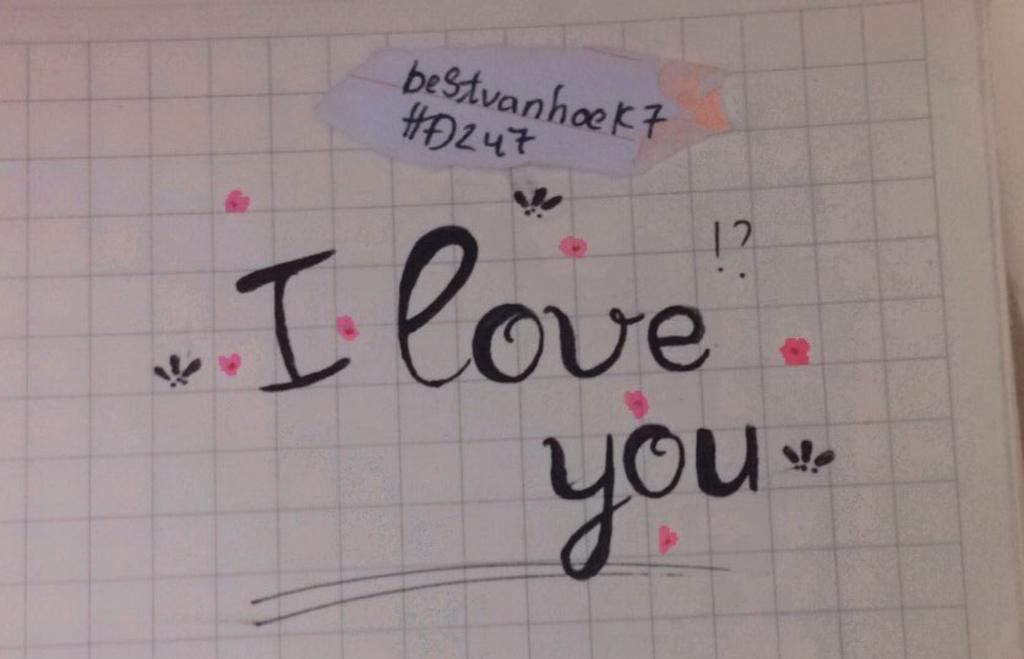 beStvanhoek7
#Đ247
!?
I love
you